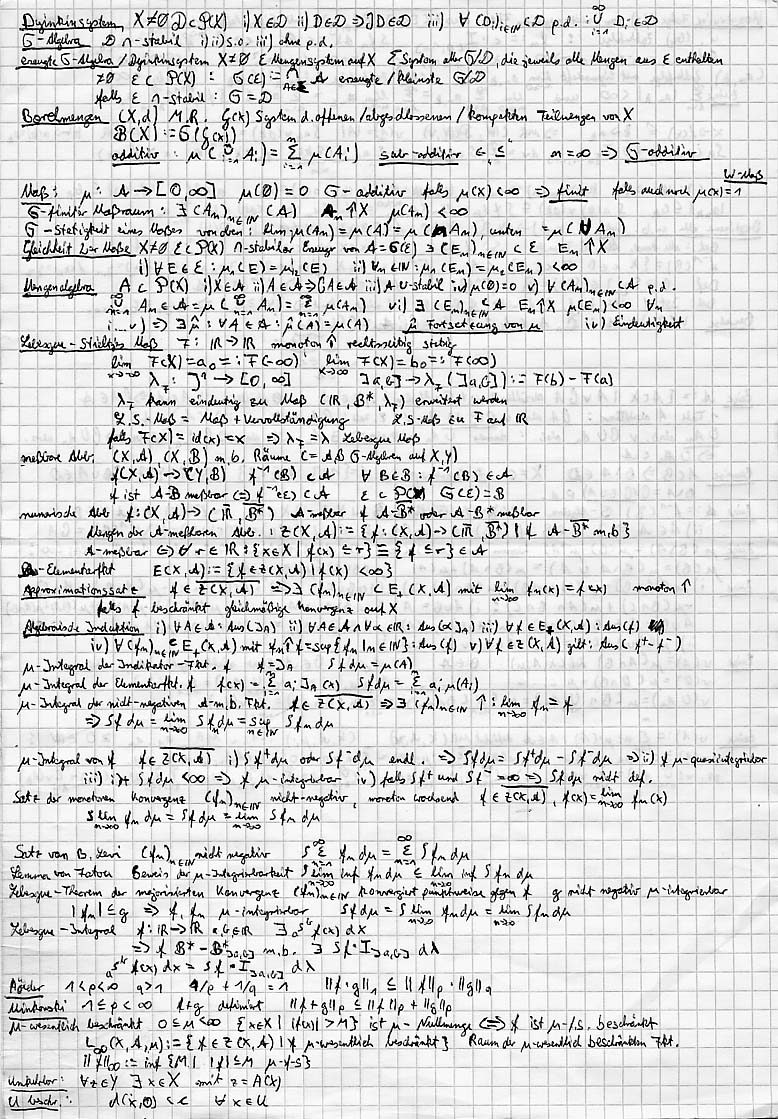 Dynkinsystem X≠∅ D⊂P(X) i) X∈D ii) D∈D ⇒ ∁D∈D iii) ∀ (Di)i∈ℕ ⊂D p.d. : ⋃ Di ∈D
σ-Algebra D ∩-stabil i) ii) s.o. iii) ohne p.d.
erzeugte σ-Algebra / Dynkinsystem X≠∅ E Mengensystem auf X Σ System aller σ/D, die jeweils alle Mengen aus E enthalten
≠∅ E ⊂ P(X) : σ(E) := ⋂ A erzeugte / kleinste σ/D
falls E ∩-stabil : σ = D
Borelmengen (X,d) M.R. G(X) System d. offenen / abgeschlossenen / kompakten Teilmengen von X
B(X) := σ(G(X))
additiv : μ(⋃ Ai) = Σ μ(Ai) sub-additiv ≤ n=∞ ⇒ σ-additiv
W-Maß
Maß: μ: A → [0,∞] μ(∅) = 0 σ-additiv falls μ(X) < ∞ ⇒ finit falls auch noch μ(X) = 1
σ-finiter Maßraum: ∃ (An)n∈ℕ (A) An ↑ X μ(An) < ∞
σ-Stetigkeit eines Maßes von oben: lim μ(An) = μ(A) = μ(⋂ An), unten = μ(⋃ An)
Gleichheit 2er Maße X≠∅ E⊂P(X) ∩-stabiler Erzeuger von A=σ(E) ∃ (En)n∈ℕ ⊂ E En ↑ X
i) ∀ E∈E : μ1(E) = μ2(E) ii) ∀n∈ℕ : μ1(En) = μ2(En) < ∞
Mengenalgebra A ⊂ P(X) i) X∈A ii) A∈A ⇒ ∁A∈A iii) A ∪-stabil iv) μ(∅)=0 v) ∀ (An)n∈ℕ ⊂A p.d.
⋃ An ∈ A ⇒ μ(⋃ An) = Σ μ(An) vi) ∃ (En)n∈ℕ ⊂A En ↑ X μ(En) < ∞ ∀n
i...v) ⇒ ∃ μ̂ : ∀ A∈A : μ̂(A) = μ(A) μ̂ Fortsetzung von μ iv) Eindeutigkeit
Lebesgue-Stieltjes Maß F: ℝ → ℝ monoton ↑ rechtsseitig stetig
lim F(x) = a0 =: F(-∞) lim F(x) = b0 =: F(∞)
λF : J → [0,∞] ]a,b] → λF(]a,b]) := F(b) - F(a)
λF kann eindeutig zu Maß (ℝ, B*, λF) erweitert werden
L.S.-Maß = Maß + Vervollständigung L.S-Maß zu F auf ℝ
falls F(x) = id(x) = x ⇒ λF = λ Lebesgue Maß
meßbare Abb. (X,A), (X,B) m.b. Räume A,B σ-Algebren auf X,Y)
f(X,A) → (Y,B) f⁻¹(B) ⊂A ∀ B∈B : f⁻¹(B) ∈A
f ist A-B meßbar ⇔ f⁻¹(E) ⊂ A E ⊂ P(X) σ(E) = B
numerische Abb f: (X,A) → (ℝ̄, B̄*) A-meßbar f A-B̄* oder A-B* meßbar
Mengen der A-meßbaren Abb. : Z(X,A) := {f: (X,A) → (ℝ̄, B̄*) | f A-B̄* m.b}
A-meßbar ⇔ ∀ r∈ℝ : {x∈X | f(x) ≤ r} ≡ {f ≤ r} ∈A
-Elementarfkt E(X,A) := {f∈Z(X,A) | f(X) < ∞}
Approximationssatz f∈Z(X,A) ⇒ ∃ (fn)n∈ℕ ⊂ E+(X,A) mit lim fn(x) = f(x) monoton ↑
falls f beschränkt gleichmäßige Konvergenz auf X
Algebraische Induktion i) ∀ A∈A : Aus(1A) ii) ∀ A∈A ∧ ∀ α∈ℝ : Aus(α1A) iii) ∀ f∈E+(X,A) : Aus(f)
iv) ∀ (fn)n∈ℕ ⊂ E+(X,A) mit fn ↑ f = sup{fn | n∈ℕ} : Aus(f) v) ∀ f∈Z(X,A) gilt: Aus(f⁺ - f⁻)
μ-Integral der Indikator-Fkt. f f = 1A ∫f dμ = μ(A)
μ-Integral der Elementarfkt. f f(x) = Σ ai 1Ai(x) ∫f dμ = Σ ai μ(Ai)
μ-Integral der nicht-negativen A-m.b. Fkt. f∈Z(X,A) ⇒ ∃ (fn)n∈ℕ ↑ : lim fn = f
⇒ ∫f dμ = lim ∫fn dμ = sup ∫fn dμ
μ-Integral von f f∈Z(X,A) i) ∫f⁺dμ oder ∫f⁻dμ endl. ⇒ ∫f dμ = ∫f⁺dμ - ∫f⁻dμ ⇒ ii) f μ-quasiintegrierbar
iii) ist ∫f dμ < ∞ ⇒ f μ-integrierbar iv) falls ∫f⁺ und ∫f⁻ = ∞ ⇒ ∫f dμ nicht def.
Satz der monotonen Konvergenz (fn)n∈ℕ nicht-negativ, monoton wachsend f∈Z(X,A), f(x) = lim fn(x)
∫ lim fn dμ = ∫f dμ = lim ∫fn dμ
Satz von B. Levi (fn)n∈ℕ nicht negativ ∫ Σ fn dμ = Σ ∫fn dμ
Lemma von Fatou Beweis der μ-Integrierbarkeit ∫ lim inf fn dμ ≤ lim inf ∫fn dμ
Lebesgue-Theorem der majorisierten Konvergenz (fn)n∈ℕ konvergiert punktweise gegen f g nicht negativ μ-integrierbar
|fn| ≤ g ⇒ f, fn μ-integrierbar ∫f dμ = ∫ lim fn dμ = lim ∫fn dμ
Lebesgue-Integral f: ℝ → ℝ a,b∈ℝ ∃ a∫b f(x) dx
⇒ f B*-B*]a,b] m.b. ∃ ∫f·I]a,b] dλ
a∫b f(x) dx = ∫f·I]a,b] dλ
Hölder 1<p<∞ q>1 1/p + 1/q = 1 ||f·g||1 ≤ ||f||p · ||g||q
Minkowski 1≤p<∞ f+g definiert ||f+g||p ≤ ||f||p + ||g||p
μ-wesentlich beschränkt 0≤M<∞ {x∈X | |f(x)| > M} ist μ-Nullmenge ⇔ f ist μ-f.s. beschränkt
L∞(X,A,μ) := {f∈Z(X,A) | f μ-wesentlich beschränkt} Raum der μ-wesentlich beschränkten Fkt.
||f||∞ := inf {M | |f| ≤ M μ-f-s}
∀ z∈Y ∃ x∈X mit z = A(x)
U beschr. : d(x,0) < c ∀ x∈U